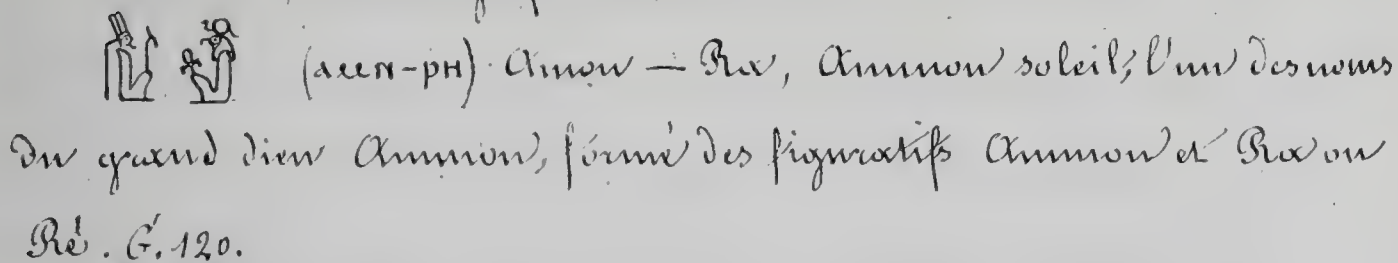 (ⲁⲙⲛ-ⲣⲏ) Amon — Ra, Ammon soleil; l'un des noms
du grand dieu Ammon, formé des figuratifs Ammon et Ra ou
Ré. G. 120.